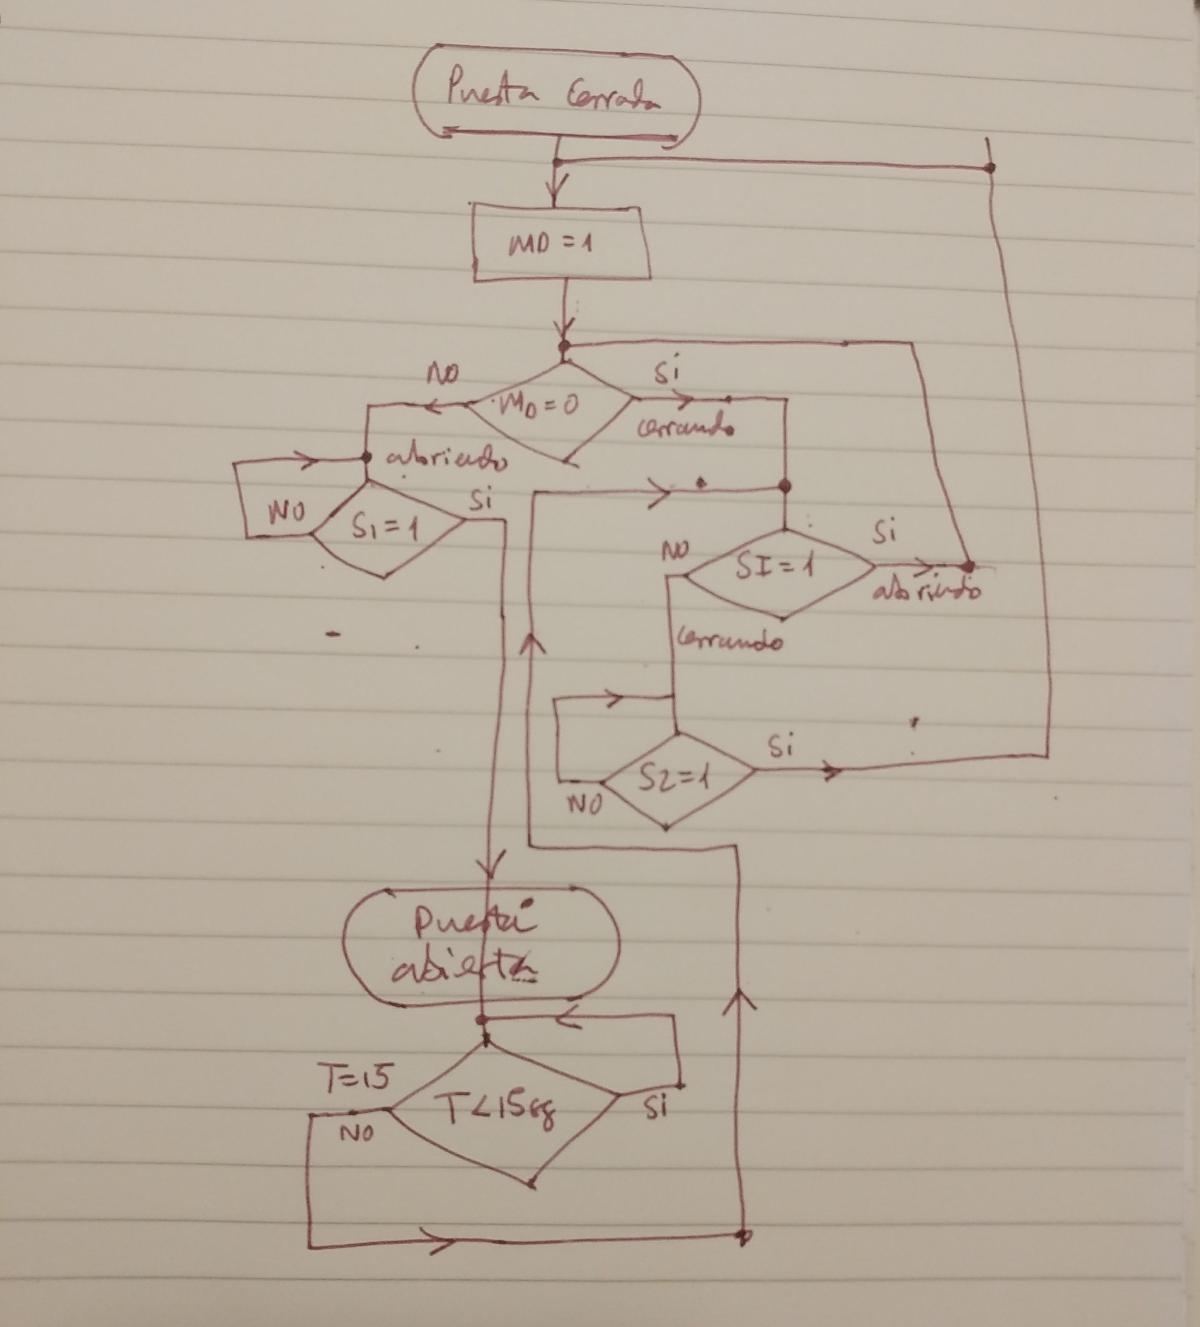 Puerta Cerrada
MD = 1
NO
Si
MD = 0
cerrando
abriendo
Si
NO
S1 = 1
Si
NO
SI = 1
abriendo
cerrando
Si
S2 = 1
NO
Puerta
abierta
T=15
T<15sg
Si
NO